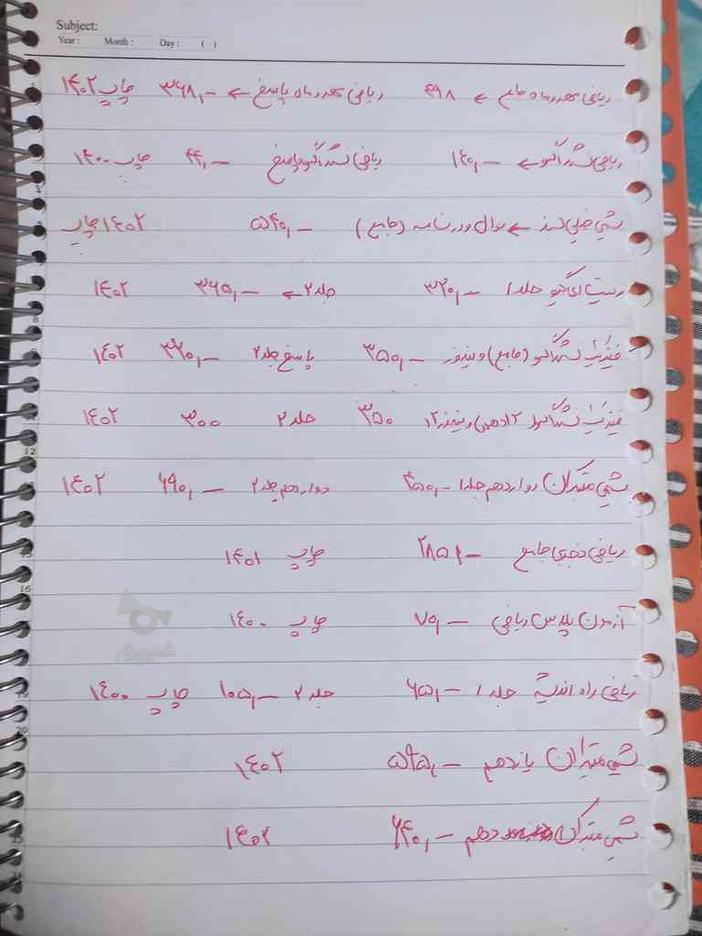 Subject:
Year : Month : Day : ( )
ریاضی مهروماه جامع ← ۴۹۸ ریاضی مهروماه پاسخ ← ۳۶۸,- چاپ ۱۴۰۲
ریاضی نشرالگو ← -,۱۴۰ ریاضی نشرالگو پاسخ -,۴۴ چاپ ۱۴۰۰
شیمی خیلی سبز ← سوال و درسنامه (جامع) -,۵۴۰ ۱۴۰۲ چاپ
زیست ای کیو جلد۱ -,۳۲۰ جلد۲ ← -,۳۶۵ ۱۴۰۲
فیزیک نشرالگو (جامع) -,۳۵۰ پاسخ جلد۲ ۱۴۰۲
فیزیک نشرالگو ۳۵۰ جلد ۲ ۳۰۰ ۱۴۰۲
شیمی مبتکران دوازدهم جلد۱ -,۴۵۰ دوازدهم جلد۲ -,۶۹۰ ۱۴۰۲
ریاضی جامع -,۲۸۵ چاپ ۱۴۰۱
آزمون پلاس ریاضی -,۷۵ چاپ ۱۴۰۰
ریاضی راه اندیشه جلد۱ -,۶۵ جلد ۲ -,۱۰۵ چاپ ۱۴۰۰
شیمی مبتکران یازدهم - ۱۴۰۲
شیمی مبتکران دهم -,۶۴۰ ۱۴۰۲
شیپور